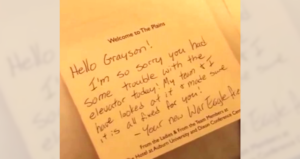 Welcome to The Plains
Hello Grayson!
I'm so sorry you had
some trouble with the
elevator today! My team & I
have looked at it & made sure
it is all fixed for you!
Your new War Eagle
From the Ladies & From the Team Members at
Hotel at Auburn University and Dixon Conference Center